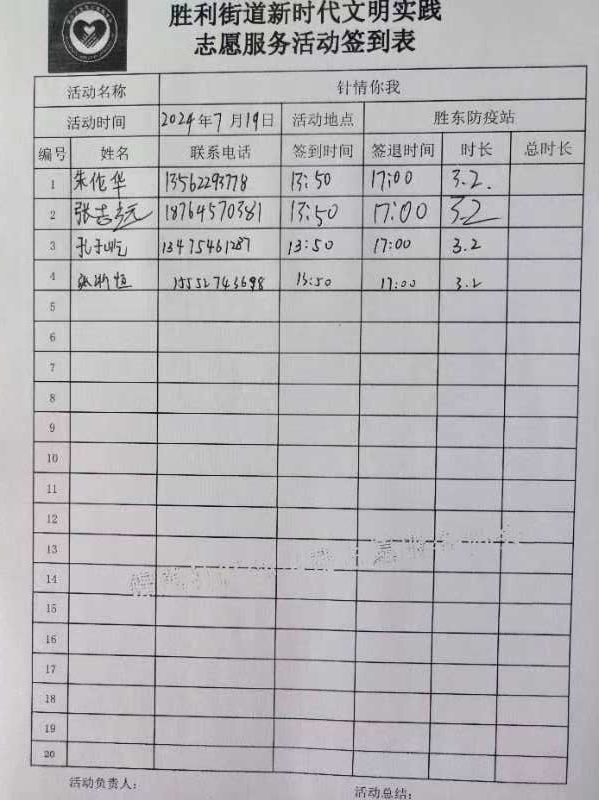 胜利街道新时代文明实践
志愿服务活动签到表
活动名称 针情你我
活动时间 2024年7月19日 活动地点 胜东防疫站
编号 姓名 联系电话 签到时间 签退时间 时长 总时长
1 朱伦华 13562293778 13:50 17:00 3.2.
2 张吉元 18764570381 13:50 17:00 3.2
3 孔子屹 13475461287 13:50 17:00 3.2
4 张渐恒 15552743698 13:50 17:00 3.2
5
6
7
8
9
10
11
12
13
14
15
16
17
18
19
20
活动负责人: 活动总结: